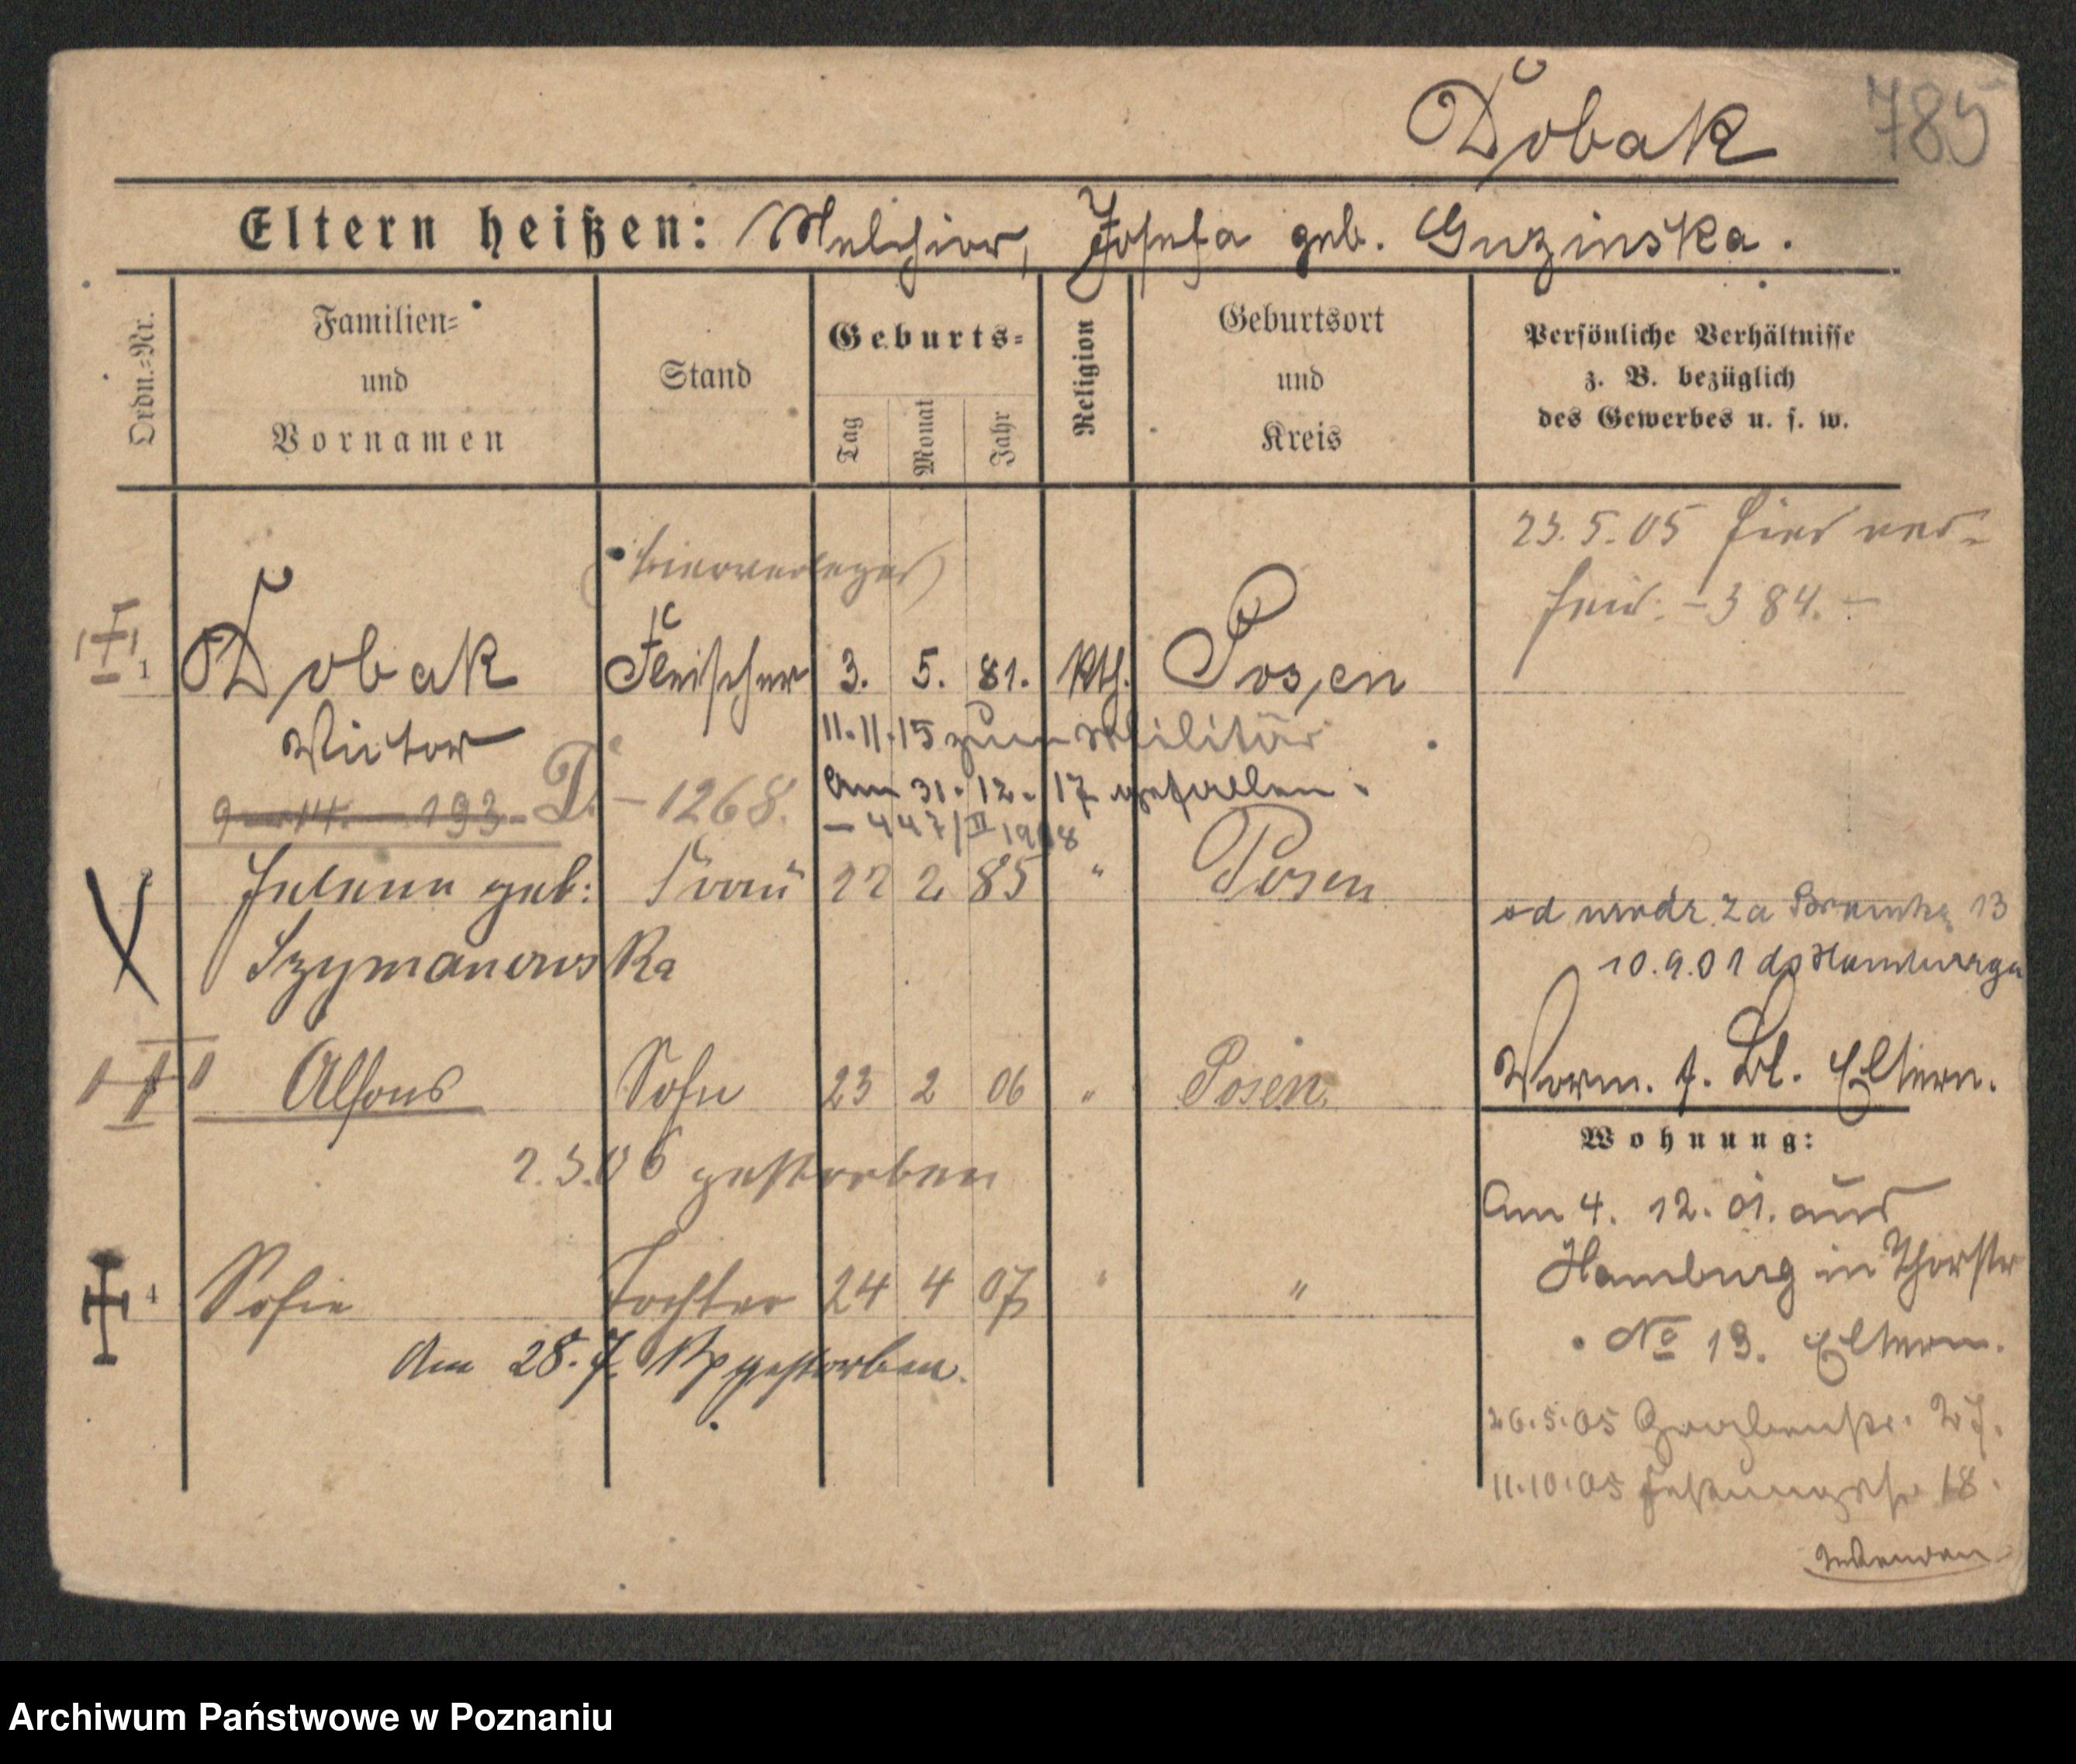 Dobak 785
Eltern heißen: Melchior, Josefa geb. Guzinska.
Ordn.-Nr.
Familien-
und
Vornamen
Stand
Geburts-
Tag
Monat
Jahr
Religion
Geburtsort
und
Kreis
Persönliche Verhältnisse
z. B. bezüglich
des Gewerbes u. s. w.
23.5.05 hier ver-
heir. - 384. -
(Bierverleger)
1 Dobak Fleischer 3. 5. 81. kth. Posen
Victor
11.11.15 zum Militär
9 14. 193. D. - 1268.
Am 31.12.17 gefallen.
- 447/II 1918
2 Helene geb: Frau 22 2 85 " Posen
Szymanowska
od urodz. za 13
10.9.01 do Hamburga
Alfons Sohn 23 2 06 " Posen
Worm. s. Bl. Eltern.
2.3.06 gestorben
Wohnung:
Am 4. 12. 01. aus
Hamburg in Thorstr
No 13. Eltern.
4 Sofie Tochter 24 4 07 " "
Am 28.7. gestorben.
26.5.05 27.
11.10.05 18.
wenden
Archiwum Państwowe w Poznaniu